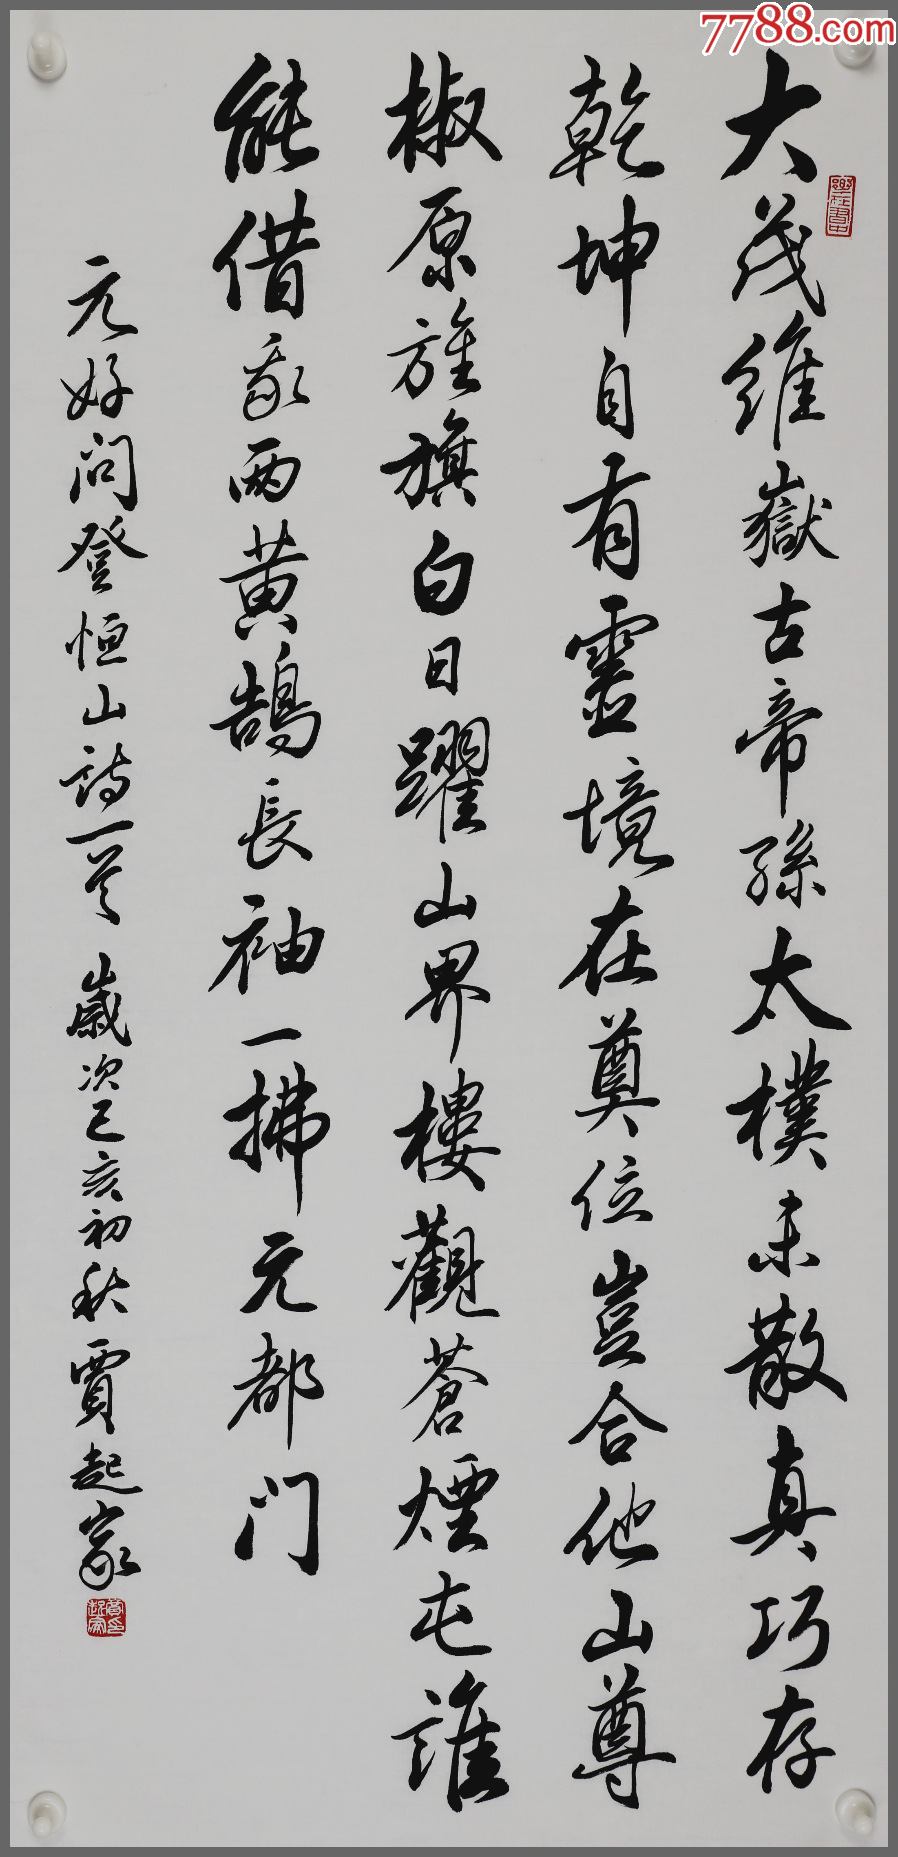 7788.com
大茂維嶽古帝孫太樸未散真巧存
乾坤自有靈境在奠位豈合他山尊
椒原旌旗白日躍山界樓觀蒼煙屯誰
能借我兩黃鵠長袖一拂元都门
元好问登恒山詩一首 歲次己亥初秋 賈起家